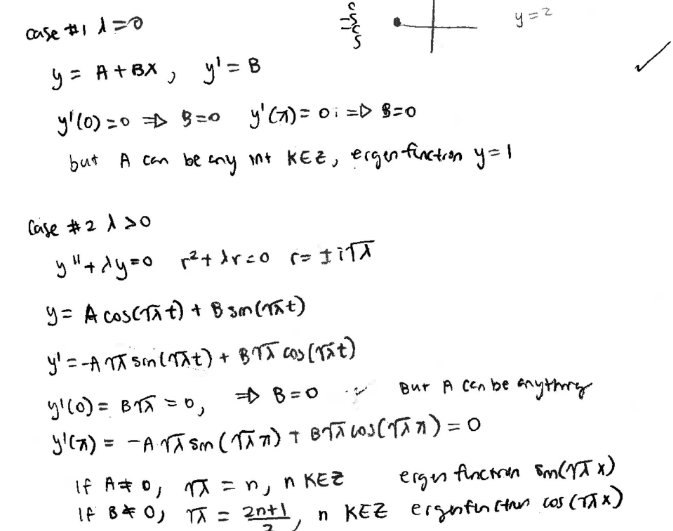 case #1 λ=0
y=2
y = A+BX, y' = B
y'(0)=0 ⇒ B=0 y'(π)=0; ⇒ B=0
but A can be any int KEZ, eigenfunction y=1
Case #2 λ>0
y''+λy=0 r²+λr=0 r=±i√λ
y= A cos(√λt) + B sin(√λt)
y' = -A√λ sin(√λt) + B√λ cos(√λt)
y'(0) = B√λ = 0, ⇒ B=0 But A can be anything
y'(π) = -A√λ sin(√λπ) + B√λ cos(√λπ) = 0
If A≠0, √λ = n, n KEZ eigen function sin(√λx)
If B≠0, √λ = 2n+1/2, n KEZ eigenfunction cos(√λx)